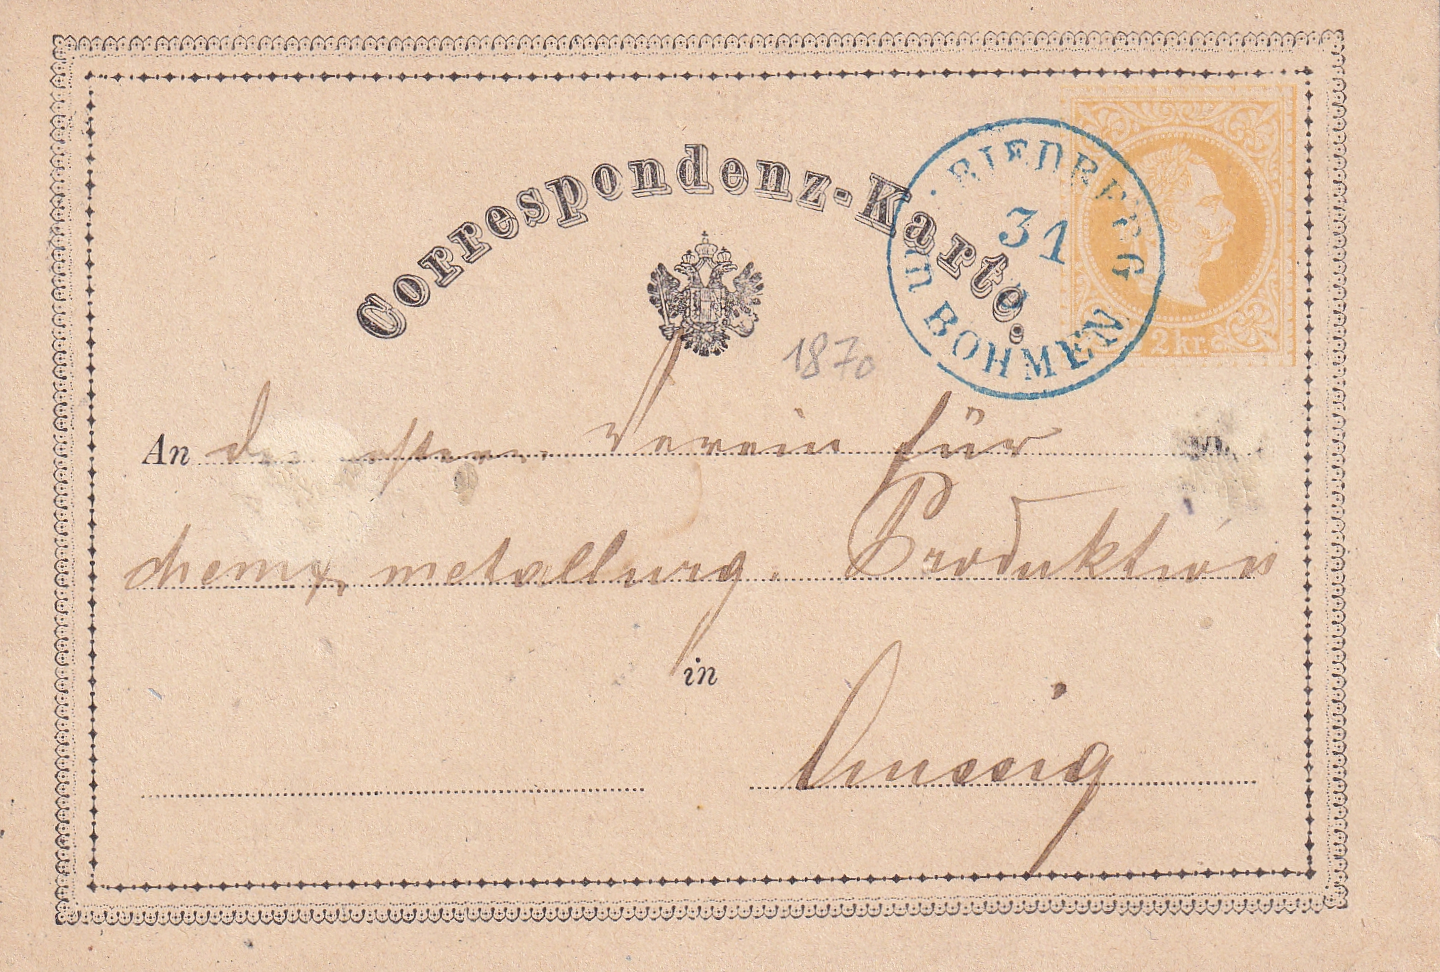 Correspondenz-Karte.
RIEDBERG
31
IN BÖHMEN
2 kr.
1870
An d österr Verein für
chem metallurg. Produktion
in
Aussig